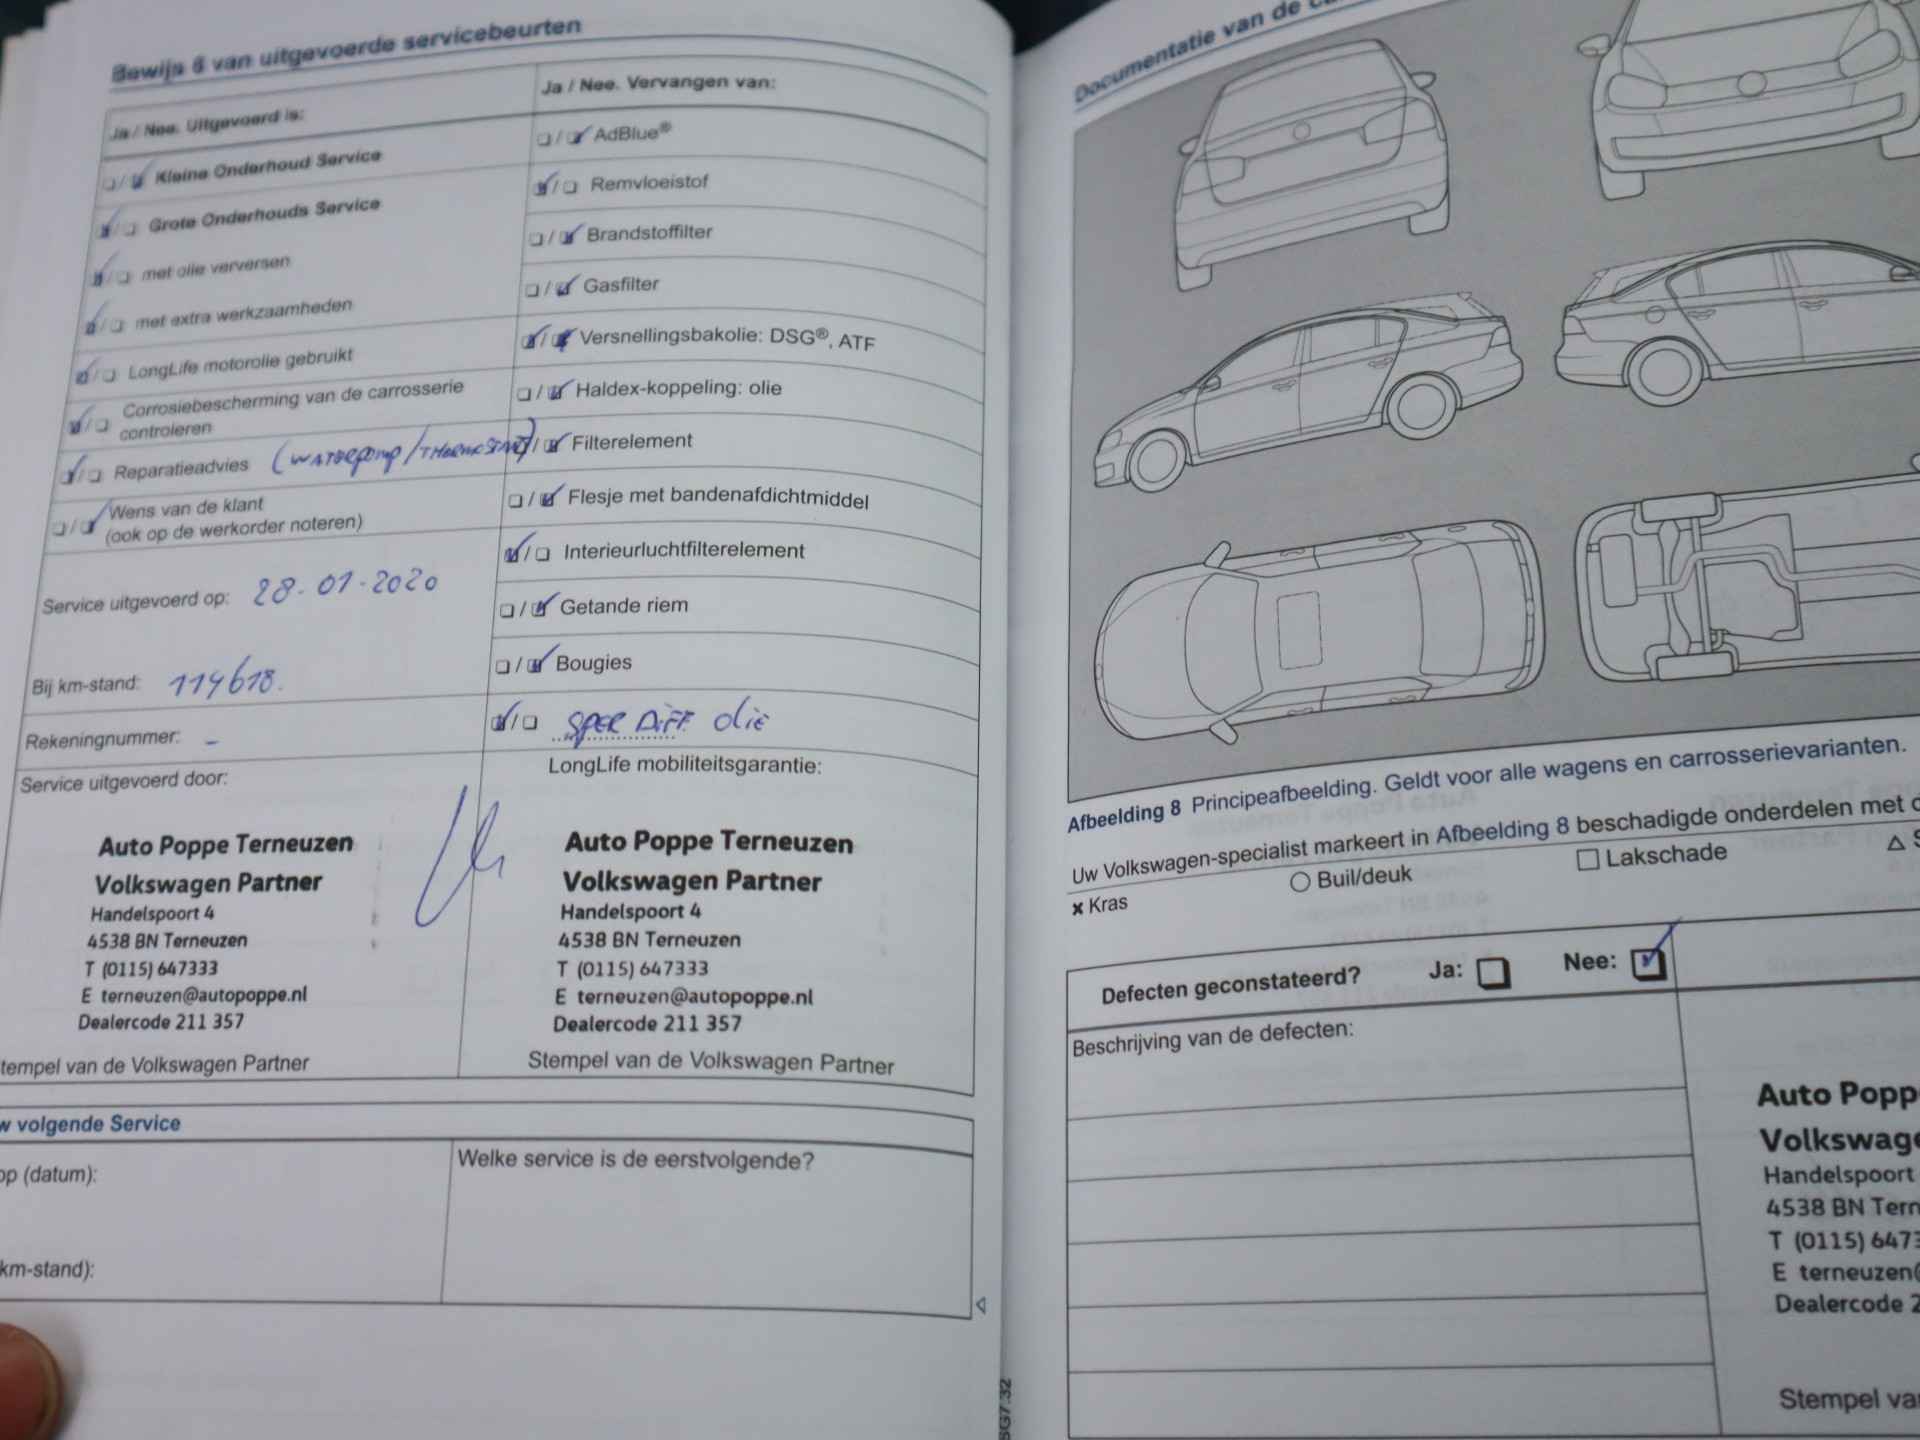 Bewijs 6 van uitgevoerde servicebeurten
Ja / Nee. Uitgevoerd is:
Kleine Onderhoud Service
Grote Onderhouds Service
met olie verversen
met extra werkzaamheden
LongLife motorolie gebruikt
Corrosiebescherming van de carrosserie
controleren
Reparatieadvies (WATERPOMP/THERMOSTAAT)
Wens van de klant
(ook op de werkorder noteren)
Service uitgevoerd op: 28-01-2020
Bij km-stand: 114618.
Rekeningnummer: -
Service uitgevoerd door:
Auto Poppe Terneuzen
Volkswagen Partner
Handelspoort 4
4538 BN Terneuzen
T (0115) 647333
E terneuzen@autopoppe.nl
Dealercode 211 357
tempel van de Volkswagen Partner
Ja / Nee. Vervangen van:
AdBlue®
Remvloeistof
Brandstoffilter
Gasfilter
Versnellingsbakolie: DSG®, ATF
Haldex-koppeling: olie
Filterelement
Flesje met bandenafdichtmiddel
Interieurluchtfilterelement
Getande riem
Bougies
SPER DIFF. olie
LongLife mobiliteitsgarantie:
Auto Poppe Terneuzen
Volkswagen Partner
Handelspoort 4
4538 BN Terneuzen
T (0115) 647333
E terneuzen@autopoppe.nl
Dealercode 211 357
Stempel van de Volkswagen Partner
w volgende Service
op (datum):
km-stand):
Welke service is de eerstvolgende?
SG7.32
Documentatie van de
Afbeelding 8 Principeafbeelding. Geldt voor alle wagens en carrosserievarianten.
Uw Volkswagen-specialist markeert in Afbeelding 8 beschadigde onderdelen met
Kras
Buil/deuk
Lakschade
Defecten geconstateerd? Ja: Nee:
Beschrijving van de defecten:
Auto Popp
Volkswage
Handelspoort
4538 BN Tern
T (0115) 6473
E terneuzen@
Dealercode 2
Stempel va